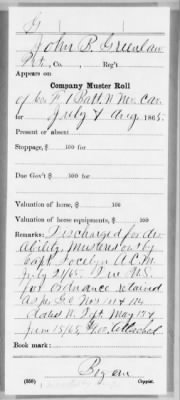 G
John B. Greenlaw
Pvt., Co. , Reg't
Appears on
Company Muster Roll
of Co. F, 1 Batt. N. Cav.
for July & Aug 1865.
Present or absent
Stoppage, $ 100 for
Due Gov't $ 100 for
Valuation of horse, $ 100
Valuation of horse equipments, $ 100
Remarks: Discharged for dis
ability. mustered out by
Capt. Jocelyn A.C.M.
July 21/65. Due U.S.
for Ordnance retained
as per G.O. Nos 101 & 114
dated W. Dpt. May 17 &
June 15/65, $ attached
Book mark:
(358)
Copyist.